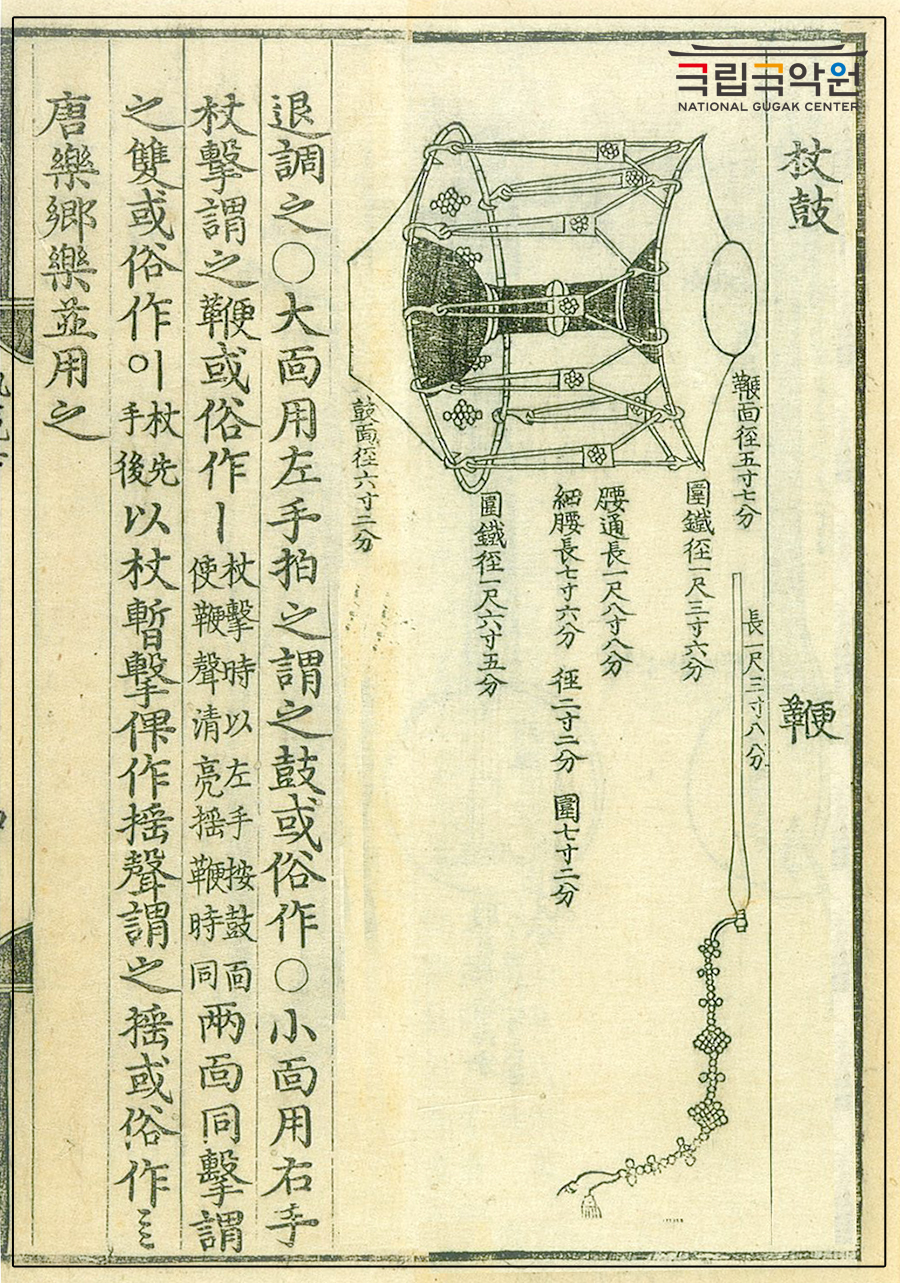 국립국악원
NATIONAL GUGAK CENTER
杖鼓
鞭
鞭面径五寸七分
長一尺三寸八分
圍鐵径一尺三寸六分
腰通長一尺八寸八分
細腰長七寸六分 径二寸二分 圍七寸二分
圍鐵径一尺六寸五分
鼓面径六寸二分
退調之〇大面用左手拍之謂之鼓或俗作〇小面用右手
杖擊謂之鞭或俗作㇑杖擊時以左手按鼓面使鞭聲清亮揺鞭時同兩面同擊謂
之雙或俗作ㅇㅣ杖先手後以杖暫擊俾作揺聲謂之揺或俗作ミ
唐樂鄕樂並用之